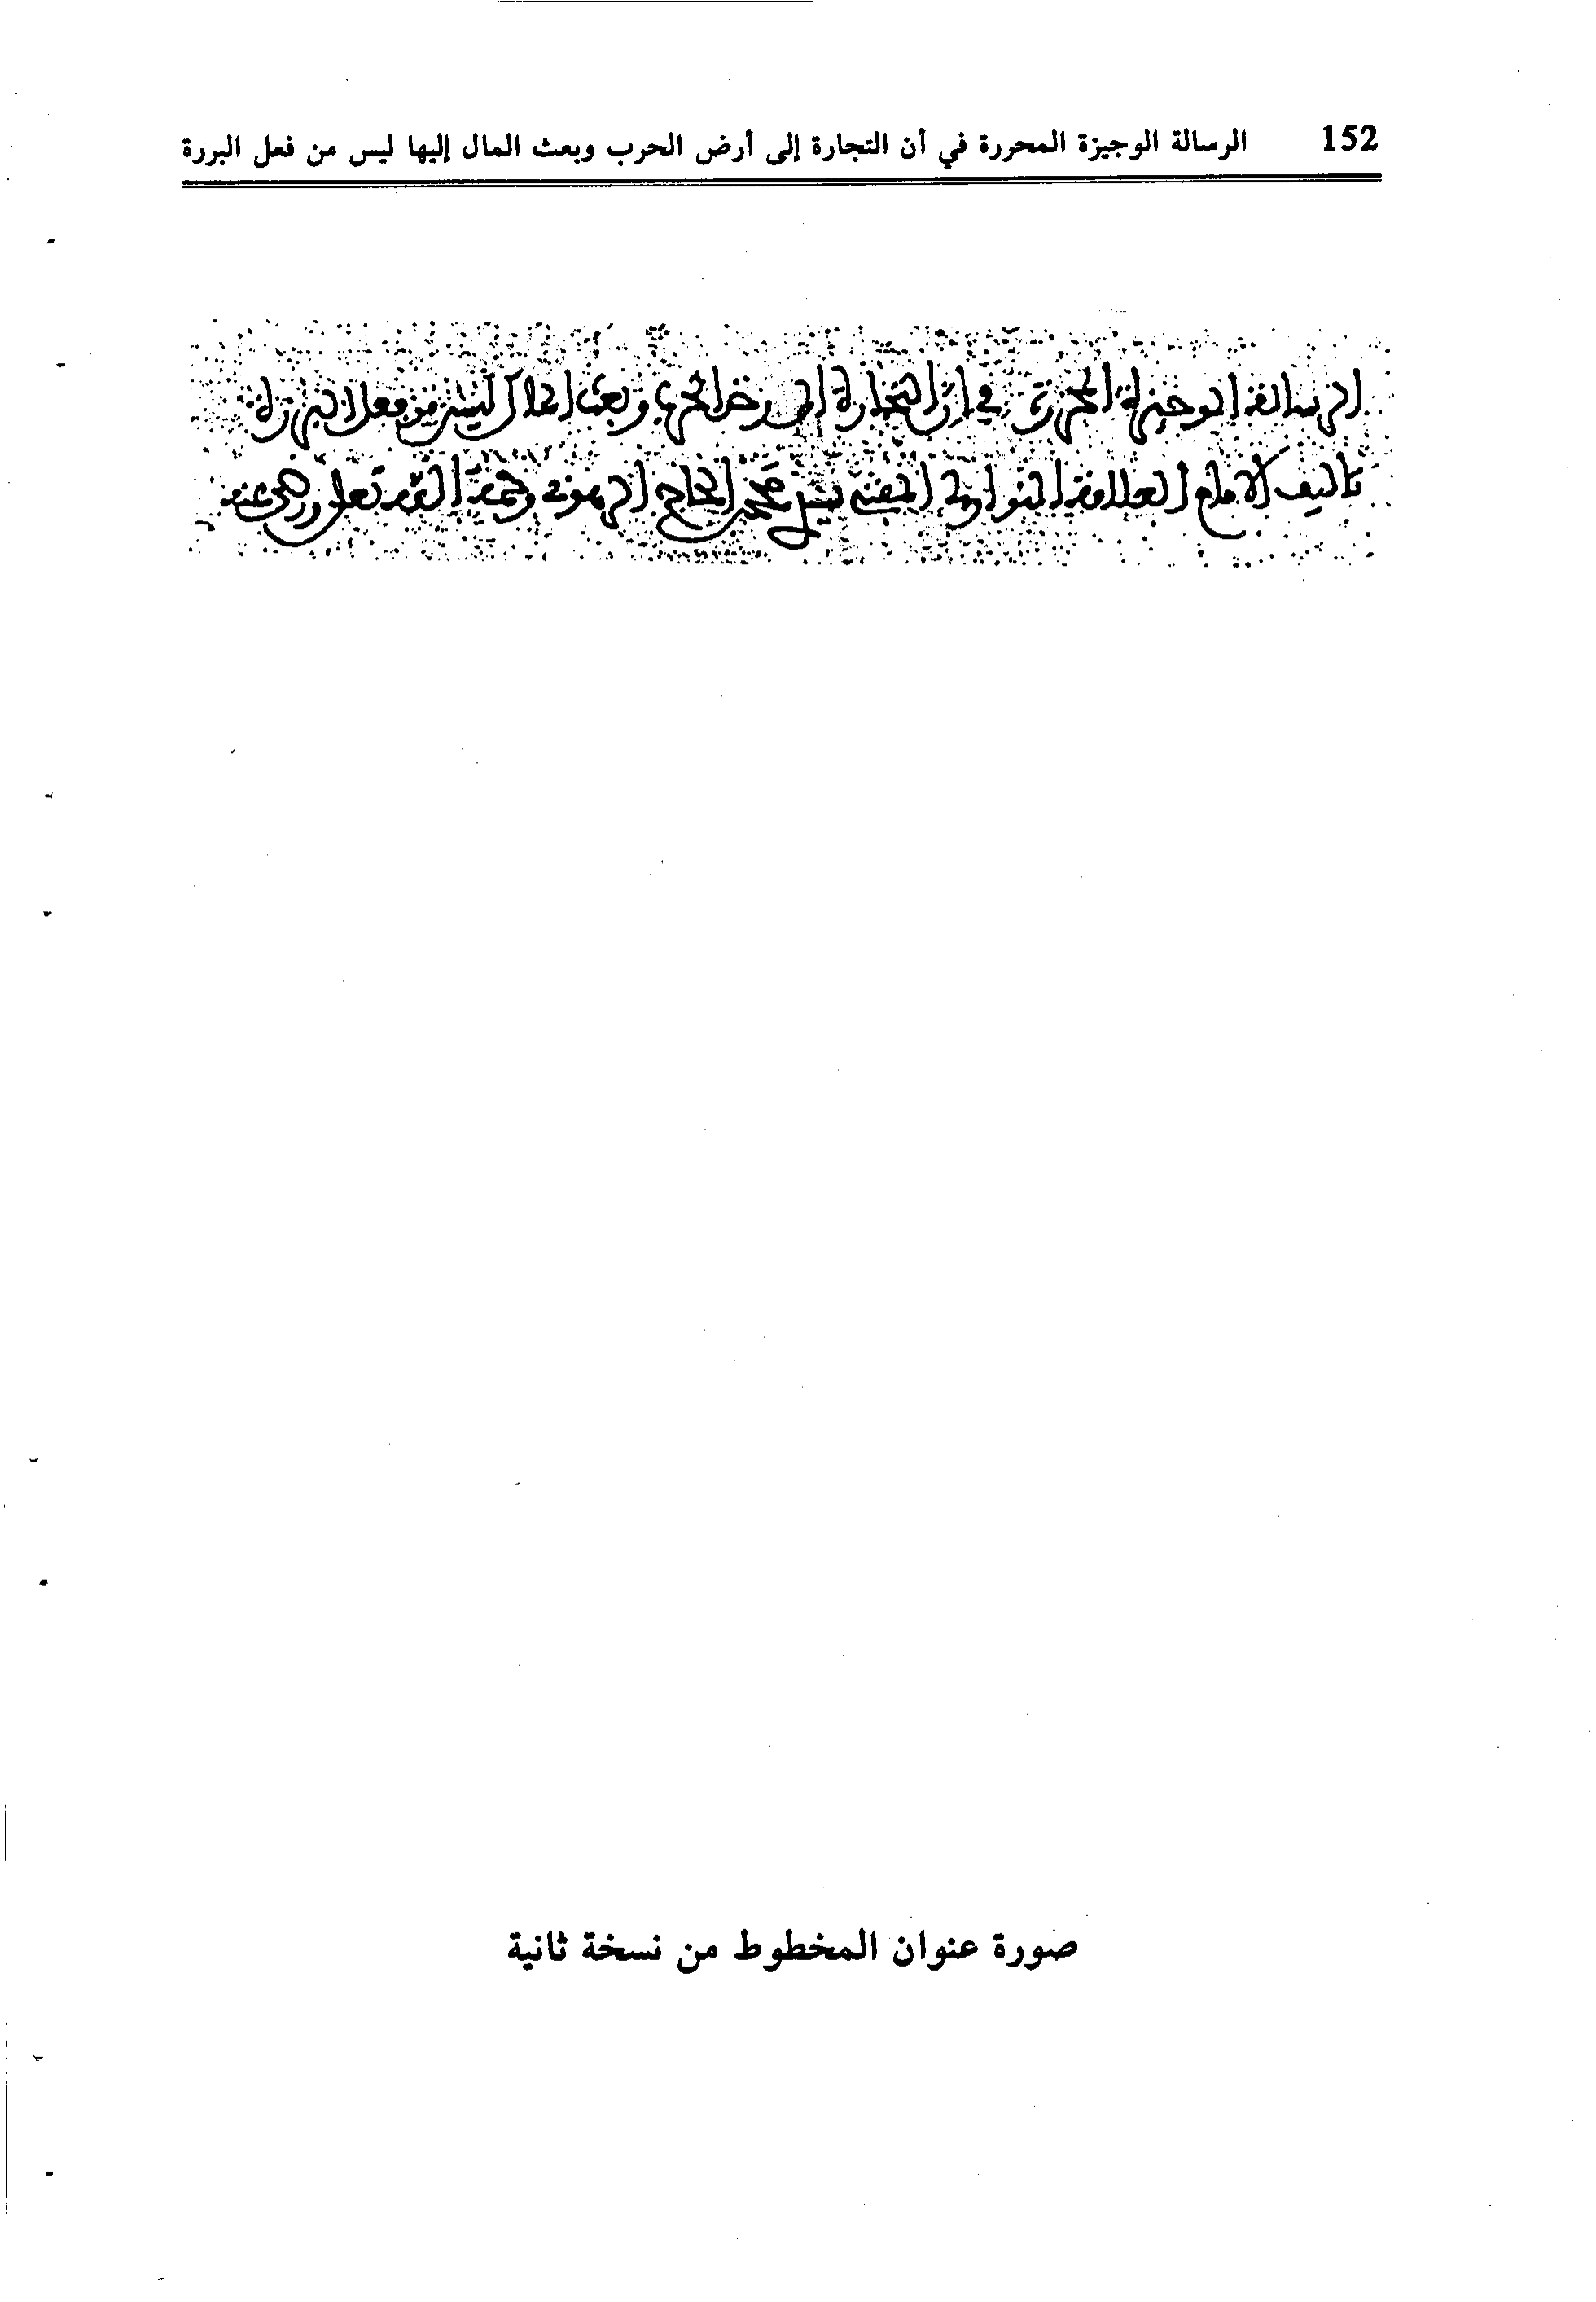 152 الرسالة الوجيزة المحررة في أن التجارة إلى أرض الحرب وبعث المال إليها ليس من فعل البررة
الرسالة الوجيزة المحررة في ان التجارة الى ارض الحرب وبعث المال ليس من فعل البررة
تاليف الامام العلامة سيدي محمد الحاج الرهوني رحمه الله تعلى ورضي عنه
صورة عنوان المخطوط من نسخة ثانية